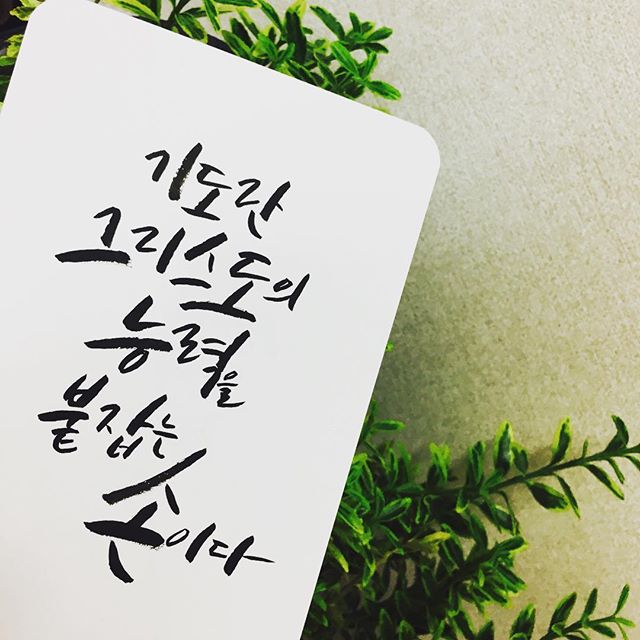 기도란
그리스도의
붙잡는
손이다